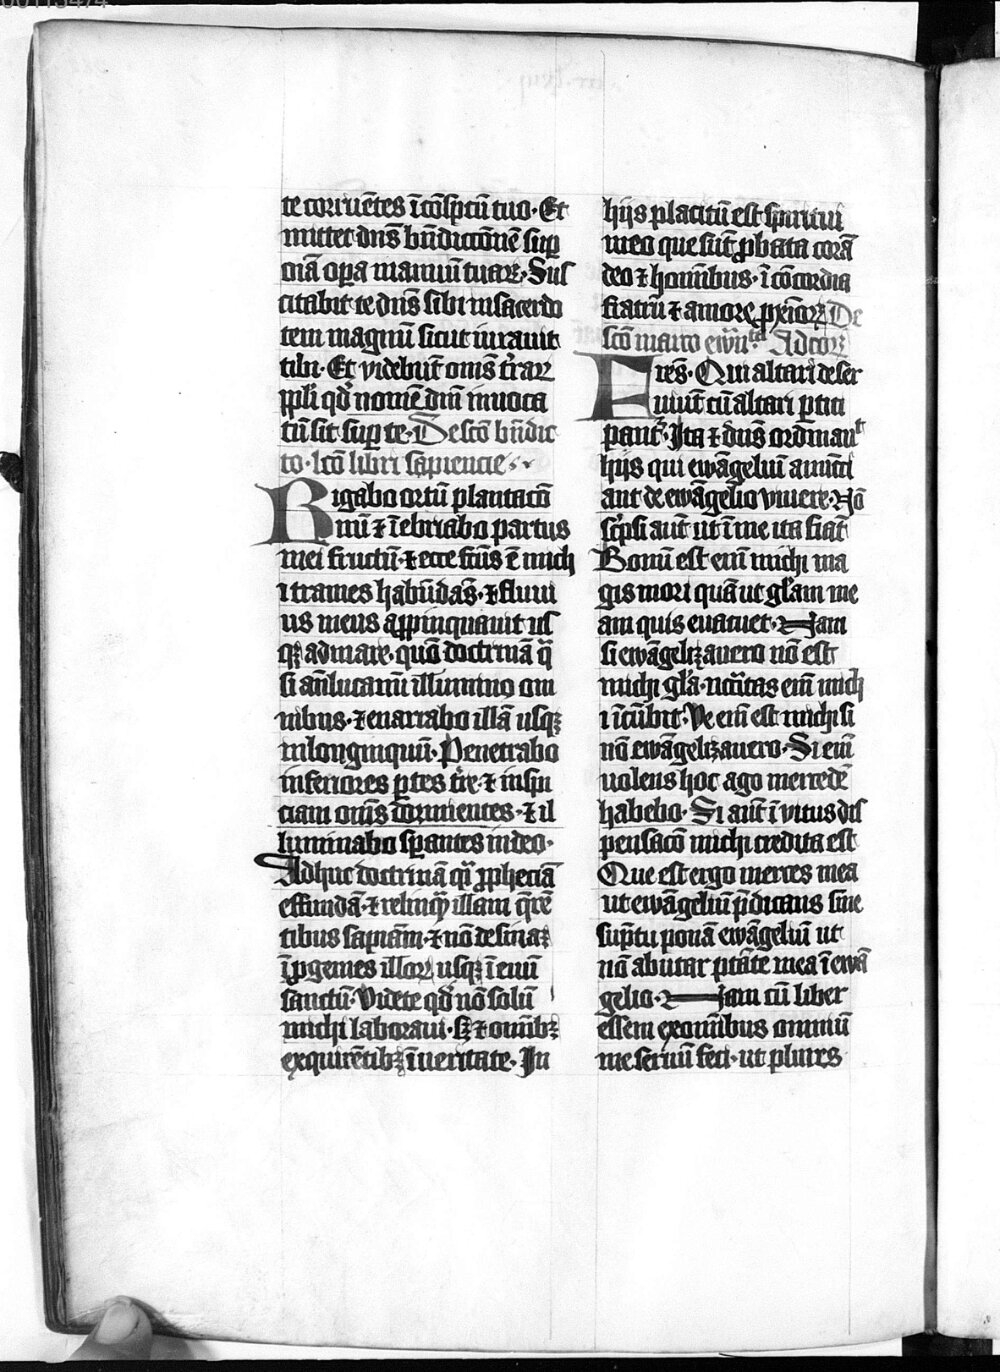 te corruētes ī cōsp̄tu tuo. Et
mittet dn̄s bn̄diccōnē sup̱
om̄ia oꝑa manuū tuaꝝ. Sus
citabit te dn̄s sibi in sacerdo
tem magnū sicut iurauit
tibi. Et videbūt om̄s t̄raꝝ
ppl̄i qd̄ nomē dn̄i inuoca
tū sit suꝑ te. De scō bn̄dic
to. lc̄o libri sapiencie
Rigabo ortū plantacō
nū ⁊ īebriabo partus
mei fructū. ⁊ ecce fcūs ē mich
i trames habūdās. ⁊ fluui
us meus app̱inquauit us
qꝫ ad mare. quō doctrinā q̄
si an̄lucanū illumino om
nibus. ⁊ enarrabo illā usqꝫ
in longinquū. Penetrabo
inferiores ꝑtes t̄re. ⁊ inspi
ciam om̄s dormientes. ⁊ il
luminabo sꝑantes in deo.
Adhuc doctrinā q̄i ꝓpheciā
effundā. ⁊ relinq̄ illam q̄rē
tibus sapiām. ⁊ nō desinā
ī ꝓgenies illoꝝ usqꝫ ī euū
sanctū. Videte qd̄ nō solū
michi laboraui. sꝫ ⁊ om̄ibꝫ
exquirētibꝫ ī ueritate. In
hijs placitū est spiritui
meo que sūt ꝓbata corā
deo ⁊ hom̄ibus. ī cōcordia
fratrū ⁊ amore ꝓxīoꝝ De
scō marco ewn̄ta Ad coꝝ
Fres̄. Qui altari deser
uiūt cū altari ꝑtici
pant̄. Ita ⁊ dn̄s ordinauit
hijs qui ewāgeliū annūci
ant de ewāgelio viuere. Nō
sc̄psi aut̄ ut ī me ita fiat
Bonū est em̄ michi ma
gis mori quā ut gl̄am me
am quis euacuet. Nam
si ewāgelizauero nō est
michi gl̄a. nc̄citas em̄ mich
i īcūbit. Ve em̄ est michi si
nō ewāgelizauero. Si em̄
uolens hoc ago mercedē
habebo. Si aut̄ īvitus dis
pensacō michi credita est
Que est ergo merces mea
ut ewāgeliū p̄dicans sine
sūptu ponā ewāgeliū ut
nō abutar ptāte mea ī ewā
gelio. Nam cū liber
essem ex om̄ibus omniū
me seruū feci. ut plures